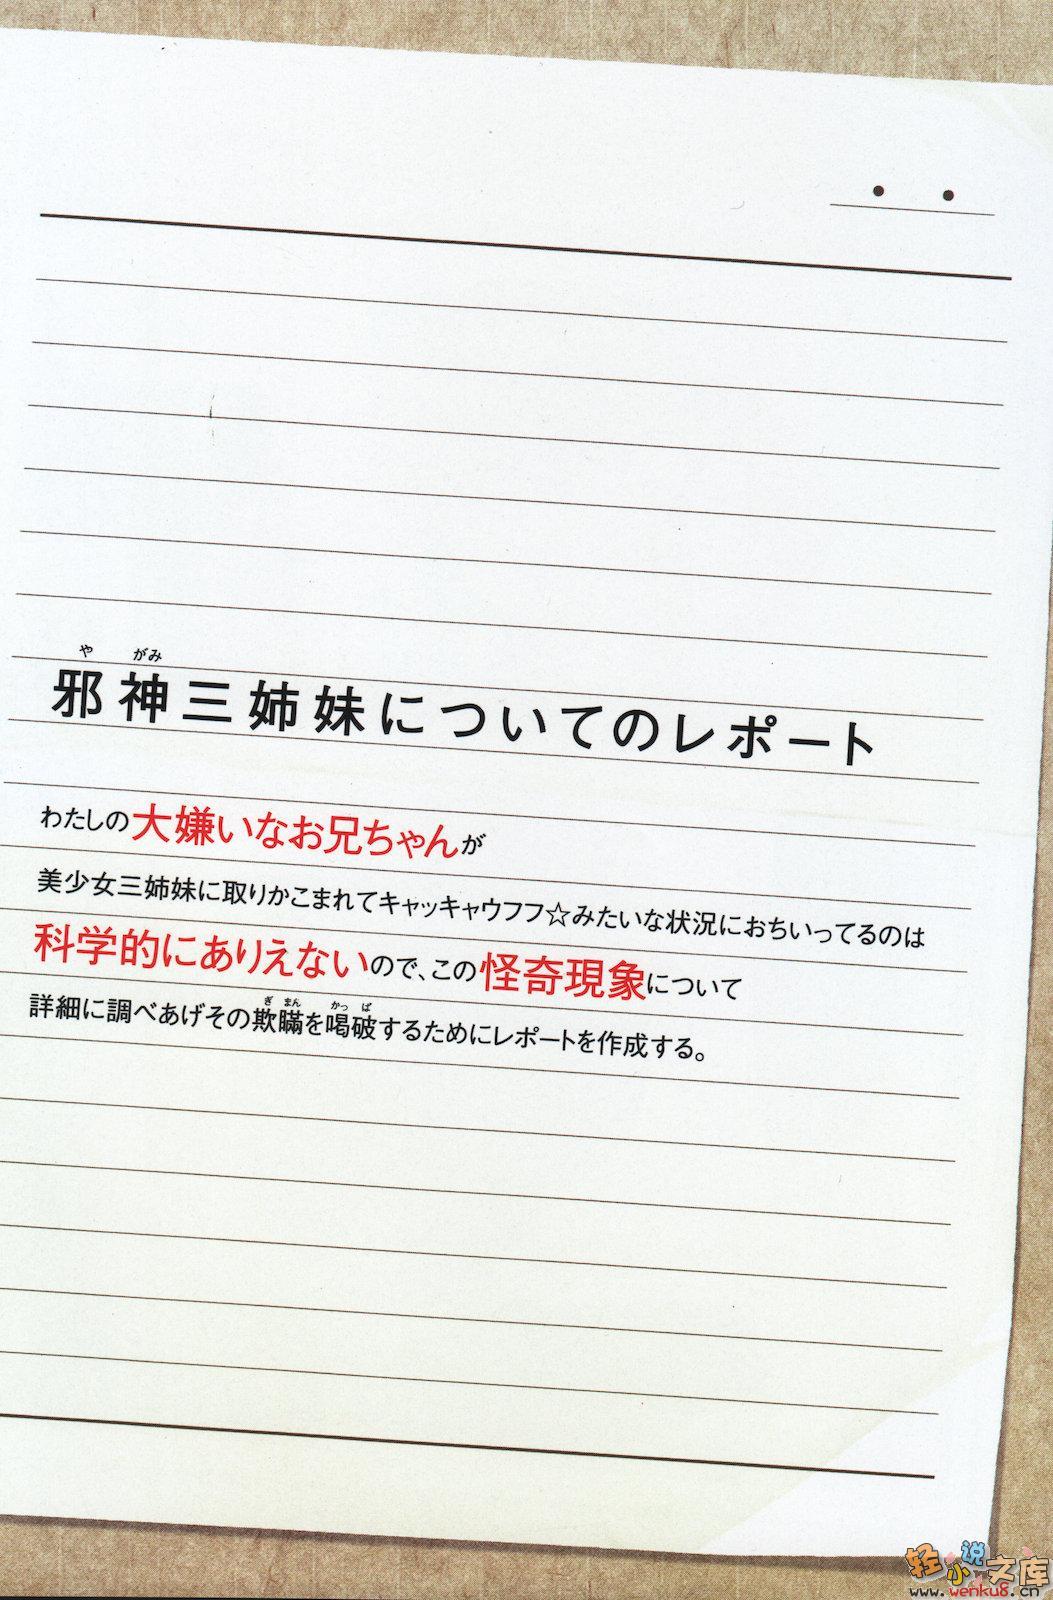 邪神三姉妹についてのレポート
わたしの大嫌いなお兄ちゃんが
美少女三姉妹に取りかこまれてキャッキャウフフ☆みたいな状況におちいってるのは
科学的にありえないので、この怪奇現象について
詳細に調べあげその欺瞞を喝破するためにレポートを作成する。
轻小说文库
www.wenku8.cn